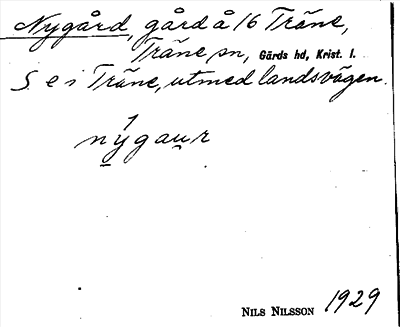 Nygård, gård å 16 Träne,
Träne sn, Gärds hd, Krist. l.
S. e i Träne, utmed landsvägen.
1
nygau̯r
NILS NILSSON 1929